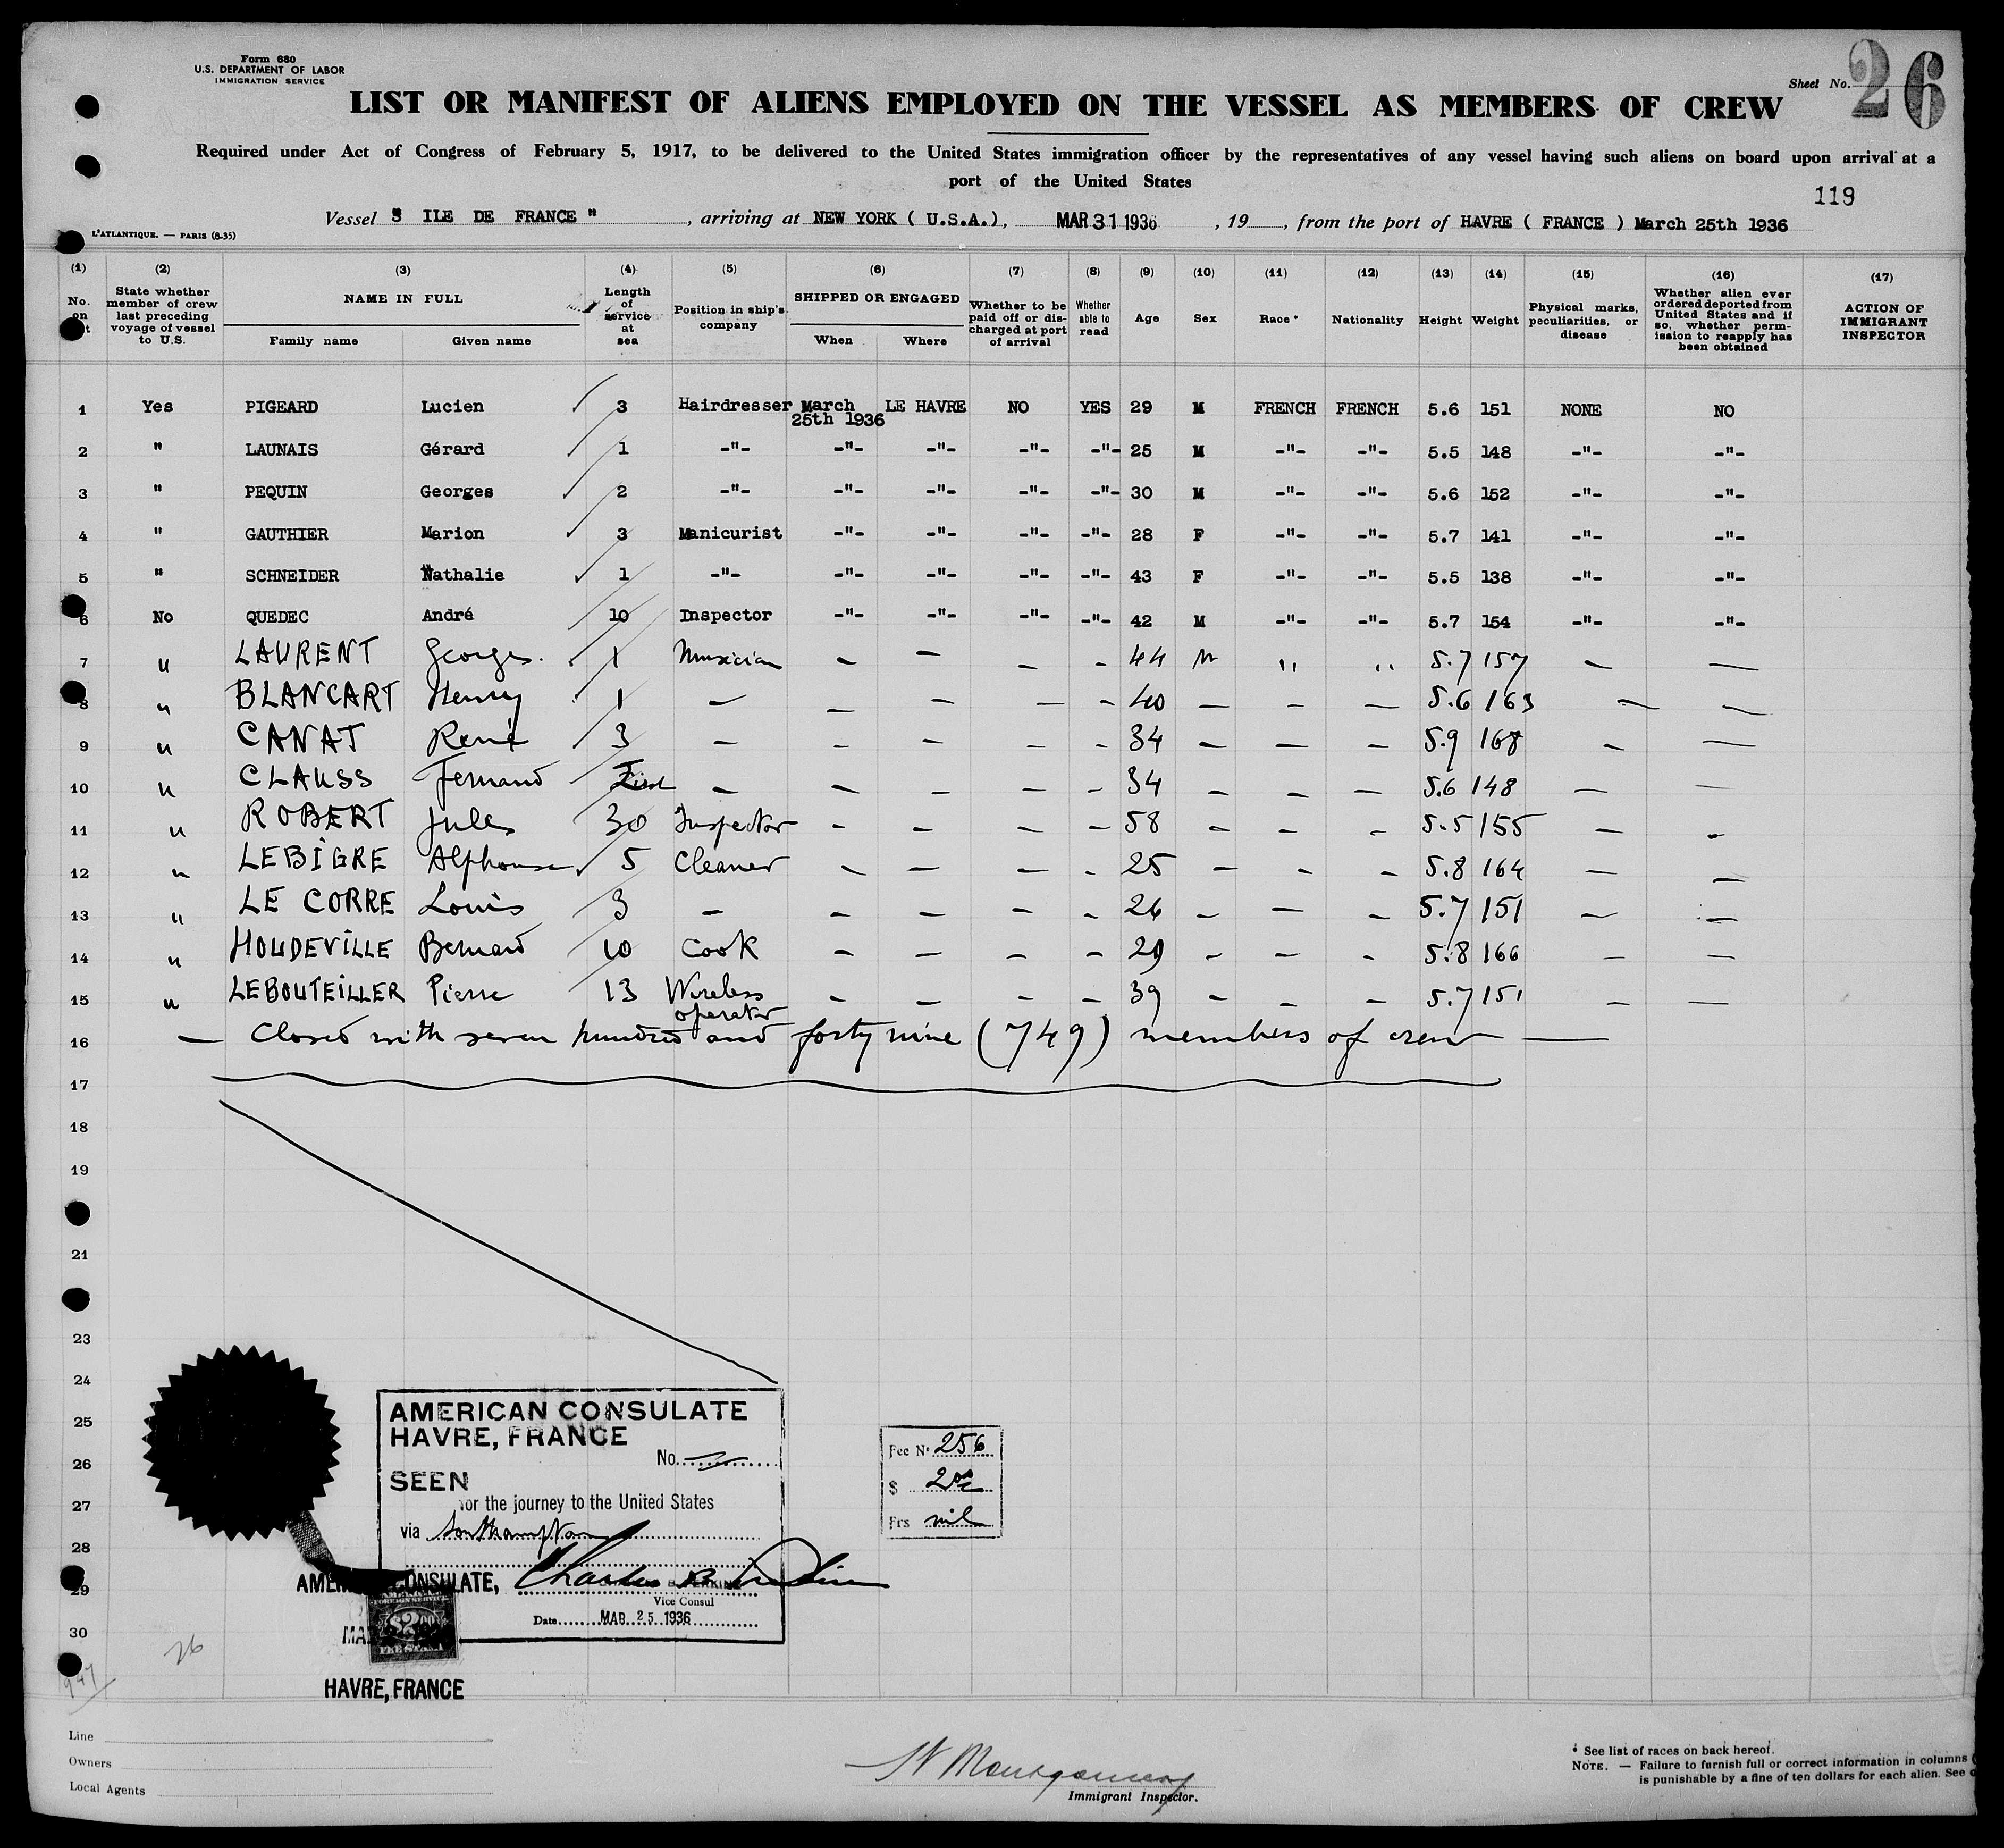 Form 680
U.S. DEPARTMENT OF LABOR
IMMIGRATION SERVICE
Sheet No. 26
LIST OR MANIFEST OF ALIENS EMPLOYED ON THE VESSEL AS MEMBERS OF CREW
Required under Act of Congress of February 5, 1917, to be delivered to the United States immigration officer by the representatives of any vessel having such aliens on board upon arrival at a
port of the United States
119
Vessel " ILE DE FRANCE ", arriving at NEW YORK ( U.S.A.), MAR 31 1936, 19, from the port of HAVRE ( FRANCE ) March 25th 1936
L'ATLANTIQUE. — PARIS (8-35)
(1) (2) (3) (4) (5) (6) (7) (8) (9) (10) (11) (12) (13) (14) (15) (16) (17)
No. on
State whether member of crew last preceding voyage of vessel to U.S.
NAME IN FULL
Family name
Given name
Length of service at sea
Position in ship's company
SHIPPED OR ENGAGED
When
Where
Whether to be paid off or discharged at port of arrival
Whether able to read
Age
Sex
Race *
Nationality
Height
Weight
Physical marks, peculiarities, or disease
Whether alien ever ordered deported from United States and if so, whether permission to reapply has been obtained
ACTION OF IMMIGRANT INSPECTOR
1 Yes PIGEARD Lucien 3 Hairdresser March 25th 1936 LE HAVRE NO YES 29 M FRENCH FRENCH 5.6 151 NONE NO
2 " LAUNAIS Gérard 1 -"- -"- -"- -"- -"- 25 M -"- -"- 5.5 148 -"- -"-
3 " PEQUIN Georges 2 -"- -"- -"- -"- -"- 30 M -"- -"- 5.6 152 -"- -"-
4 " GAUTHIER Marion 3 Manicurist -"- -"- -"- -"- 28 F -"- -"- 5.7 141 -"- -"-
5 " SCHNEIDER Nathalie 1 -"- -"- -"- -"- -"- 43 F -"- -"- 5.5 138 -"- -"-
6 No QUEDEC André 10 Inspector -"- -"- -"- -"- 42 M -"- -"- 5.7 154 -"- -"-
7 " LAURENT Georges. 1 Musician — — — — 44 M " " 5.7 157 — —
8 " BLANCART Henry 1 — — — — — 40 — — — 5.6 163 — —
9 " CANAT René 3 — — — — — 34 — — — 5.9 168 — —
10 " CLAUSS Fernand — — — — — 34 — — — 5.6 148 — —
11 " ROBERT Jules 30 Inspector — — — — 58 — — — 5.5 155 — —
12 " LEBIGRE Alphonse 5 Cleaner — — — — 25 — — — 5.8 164 — —
13 " LE CORRE Louis 3 — — — — — 26 — — — 5.7 151 — —
14 " HOUDEVILLE Bernard 10 Cook — — — — 29 — — — 5.8 166 — —
15 " LEBOUTEILLER Pierre 13 Wireless operator — — — — 39 — — — 5.7 151 — —
16 — Closed with seven hundred and forty nine (749) members of crew —
17
18
19
21
23
24
25
26
27
28
29
30
AMERICAN CONSULATE
HAVRE, FRANCE
No.
SEEN
for the journey to the United States
via Southampton
Vice Consul
Date MAR 25 1936
Fee No 256
$ 2.00
Frs nil
AMERICAN CONSULATE,
FOREIGN SERVICE
$2.00
FEE STAMP
HAVRE, FRANCE
26
Line
Owners
Local Agents
W Montgomery
Immigrant Inspector.
* See list of races on back hereof.
NOTE. — Failure to furnish full or correct information in columns (
is punishable by a fine of ten dollars for each alien. See